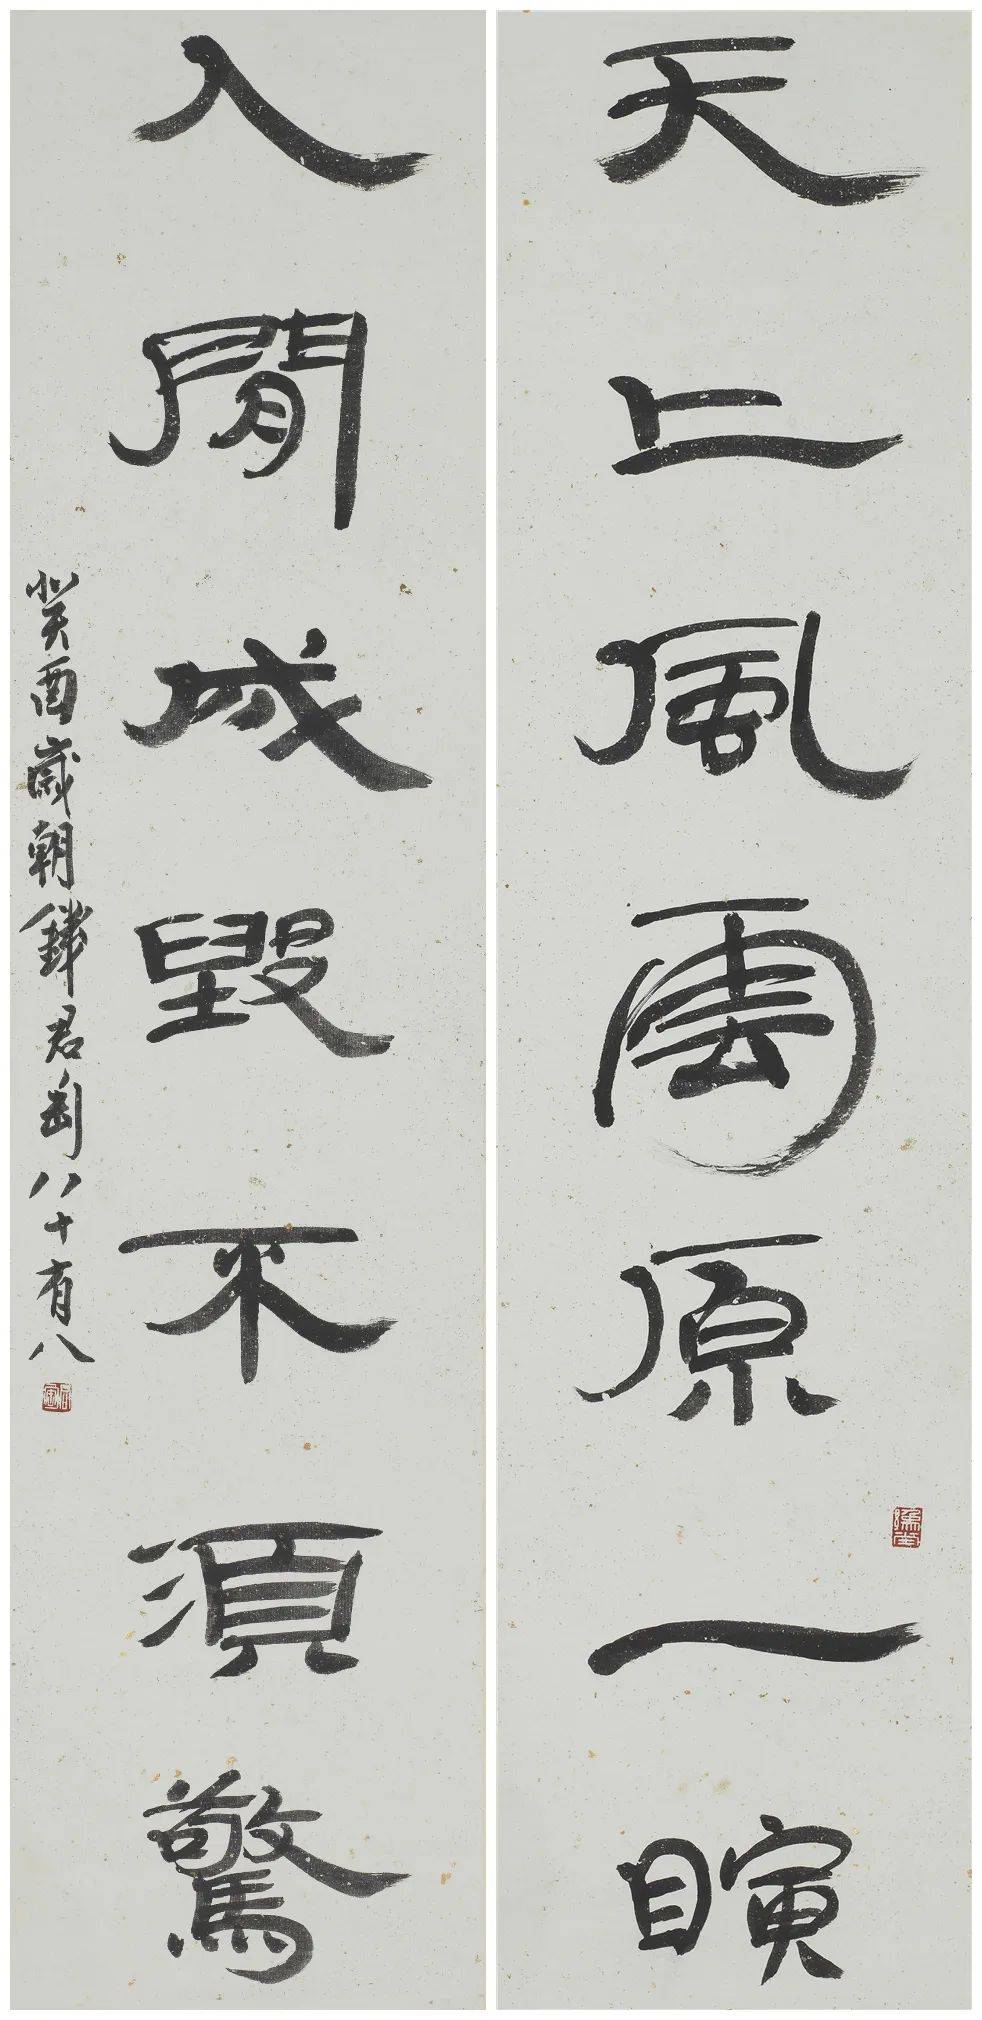 天上風雲原一瞚
人閒成毀不須驚
癸酉歲朝錢君匋八十有八